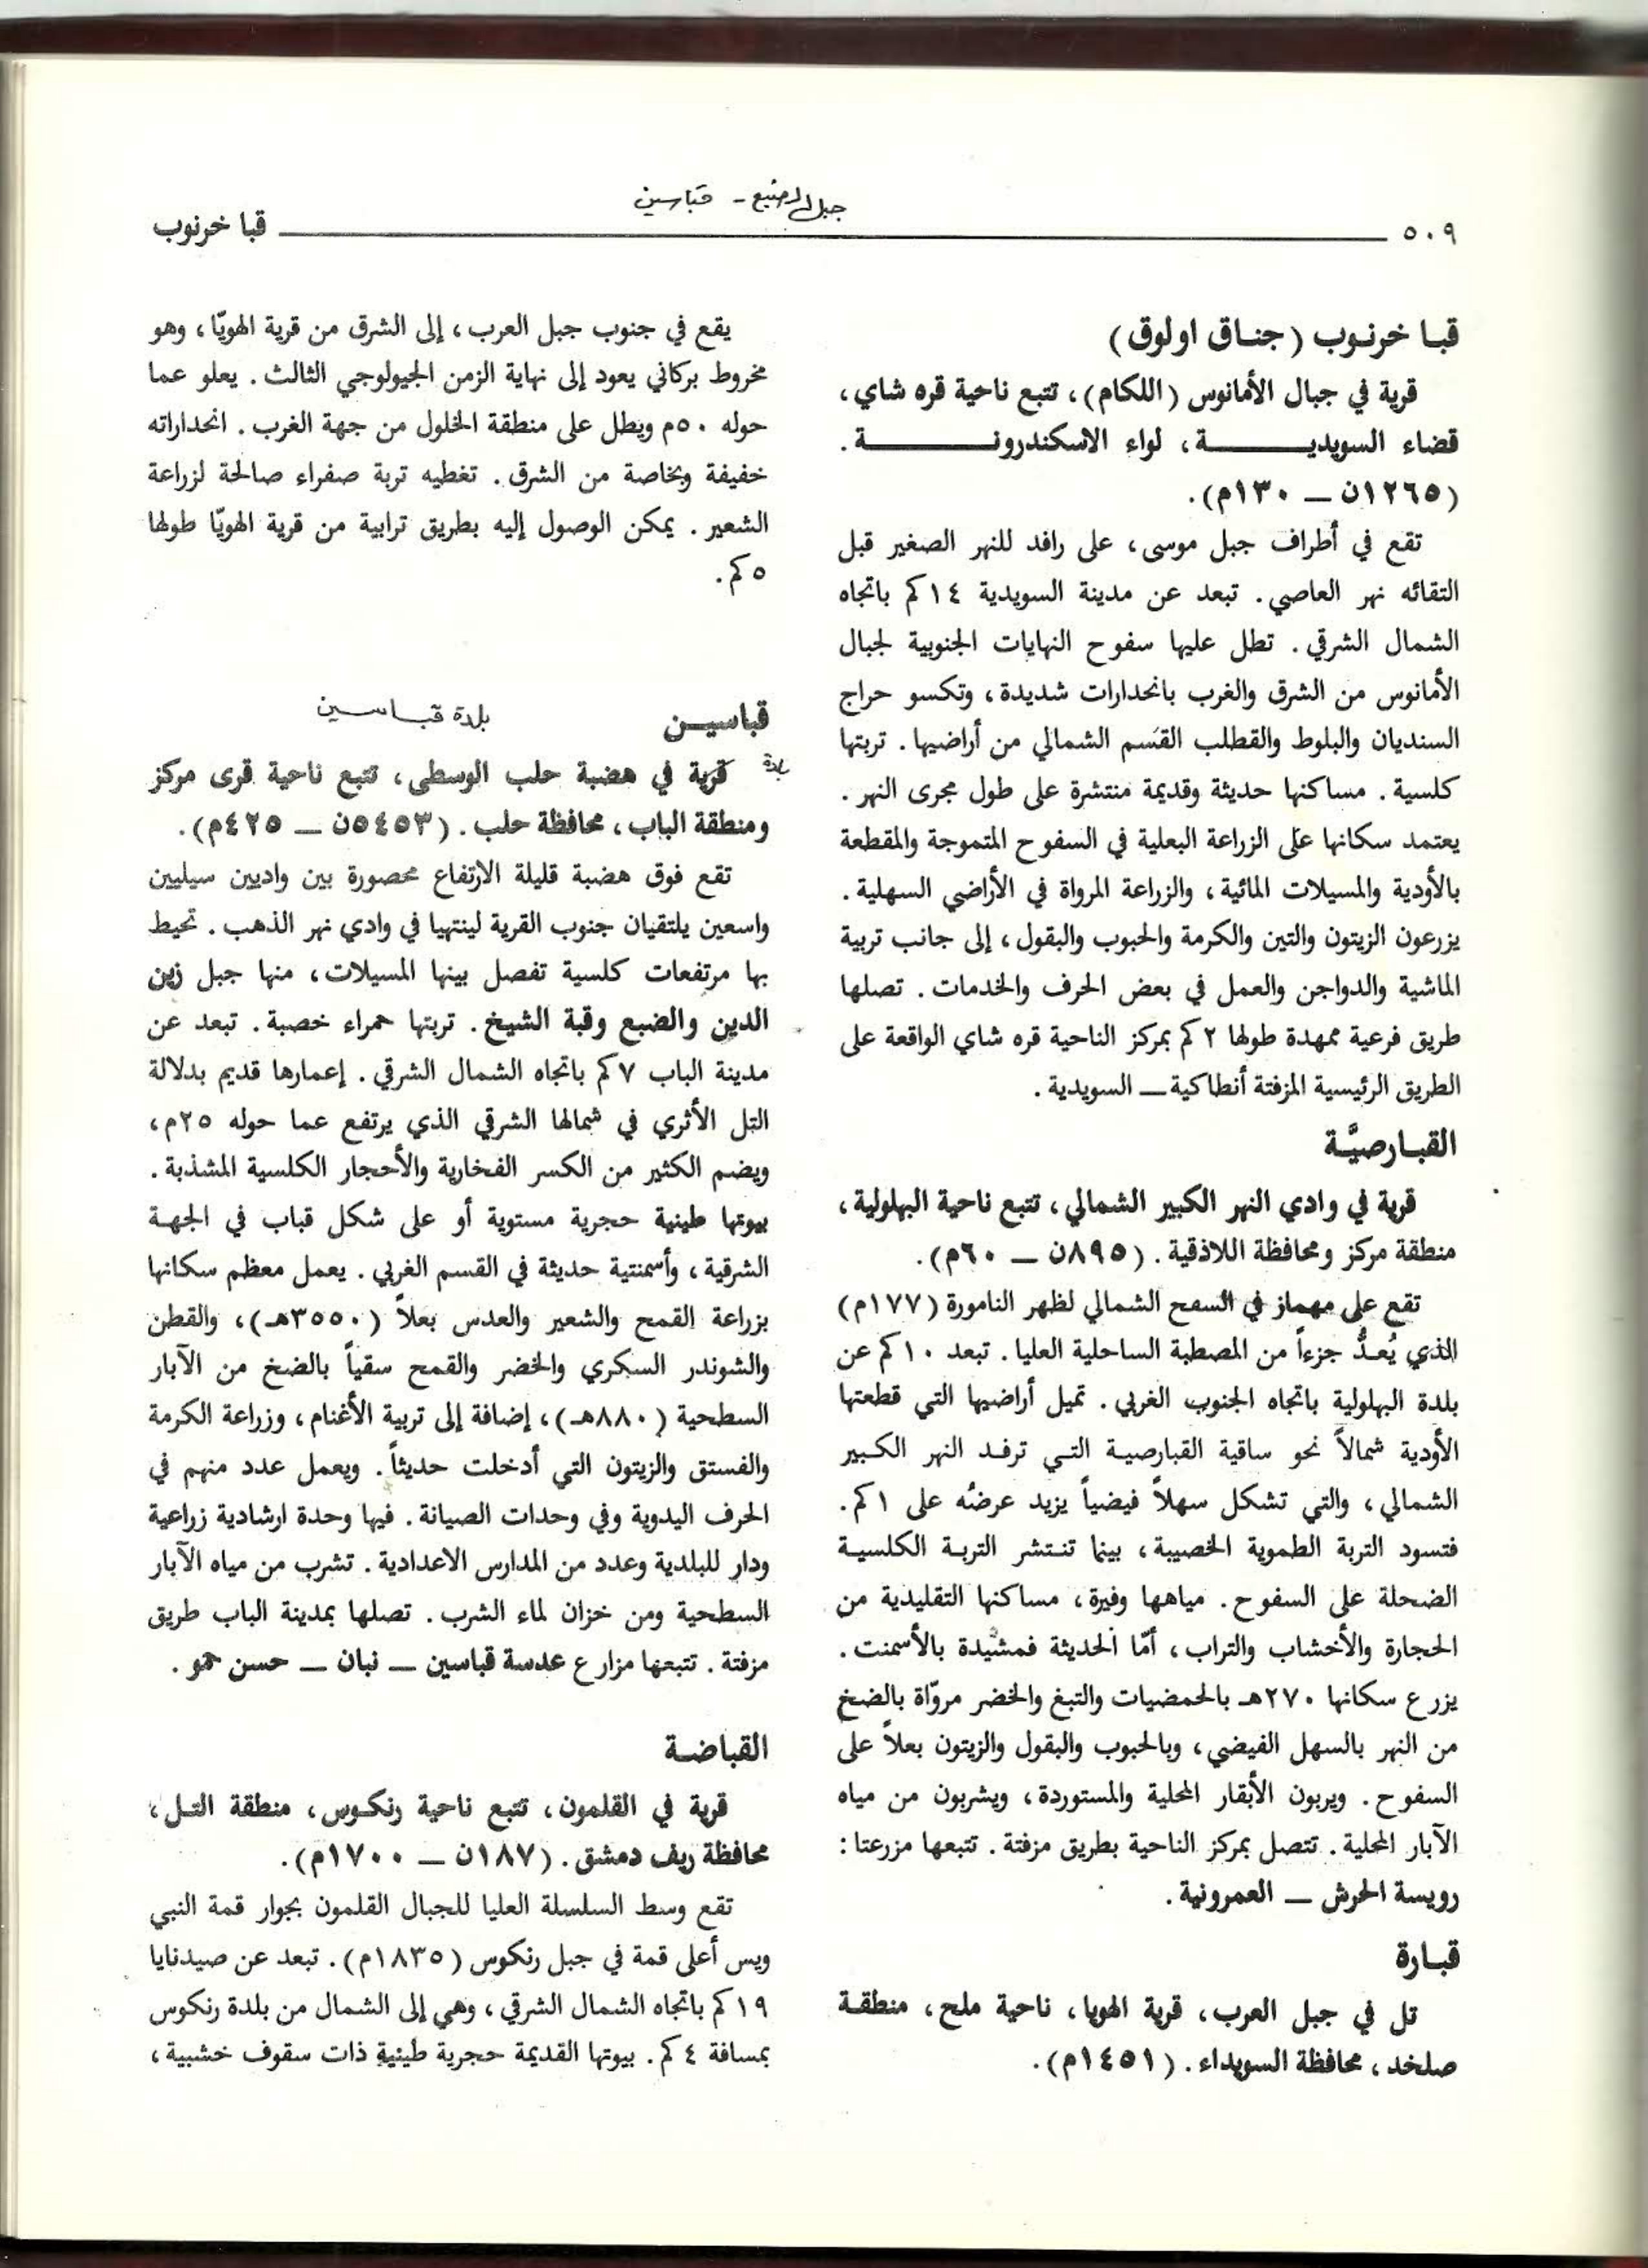 جبل الضبع - قباسين
٥٠٩ قبا خرنوب
قبا خرنوب (جناق اولوق)
قرية في جبال الأمانوس (اللكام)، تتبع ناحية قره شاي،
قضاء السويدية، لواء الاسكندرونة.
(١٢٦٥ن ــ ١٣٠م).
تقع في أطراف جبل موسى، على رافد للنهر الصغير قبل
التقائه نهر العاصي. تبعد عن مدينة السويدية ١٤كم باتجاه
الشمال الشرقي. تطل عليها سفوح النهايات الجنوبية لجبال
الأمانوس من الشرق والغرب بانحدارات شديدة، وتكسو حراج
السنديان والبلوط والقطلب القسم الشمالي من أراضيها. تربتها
كلسية. مساكنها حديثة وقديمة منتشرة على طول مجرى النهر.
يعتمد سكانها على الزراعة البعلية في السفوح المتموجة والمقطعة
بالأودية والمسيلات المائية، والزراعة المرواة في الأراضي السهلية.
يزرعون الزيتون والتين والكرمة والحبوب والبقول، إلى جانب تربية
الماشية والدواجن والعمل في بعض الحرف والخدمات. تصلها
طريق فرعية ممهدة طولها ٢كم بمركز الناحية قره شاي الواقعة على
الطريق الرئيسية المزفتة أنطاكية ــ السويدية.
القبارصيَّة
قرية في وادي النهر الكبير الشمالي، تتبع ناحية البهلولية،
منطقة مركز ومحافظة اللاذقية. (٨٩٥ن ــ ٦٠م).
تقع على مهماز في السفح الشمالي لظهر النامورة (١٧٧م)
الذي يُعدُّ جزءاً من المصطبة الساحلية العليا. تبعد ١٠كم عن
بلدة البهلولية باتجاه الجنوب الغربي. تميل أراضيها التي قطعتها
الأودية شمالاً نحو ساقية القبارصية التي ترفد النهر الكبير
الشمالي، والتي تشكل سهلاً فيضياً يزيد عرضُه على ١كم.
فتسود التربة الطموية الخصيبة، بينما تنتشر التربة الكلسية
الضحلة على السفوح. مياهها وفيرة، مساكنها التقليدية من
الحجارة والأخشاب والتراب، أمّا الحديثة فمشيدة بالأسمنت.
يزرع سكانها ٢٧٠هـ بالحمضيات والتبغ والخضر مروّاة بالضخ
من النهر بالسهل الفيضي، وبالحبوب والبقول والزيتون بعلاً على
السفوح. ويربون الأبقار المحلية والمستوردة، ويشربون من مياه
الآبار المحلية. تتصل بمركز الناحية بطريق مزفتة. تتبعها مزرعتا:
رويسة الحرش ــ العمرونية.
قبارة
تل في جبل العرب، قرية الهويا، ناحية ملح، منطقة
صلخد، محافظة السويداء. (١٤٥١م).
يقع في جنوب جبل العرب، إلى الشرق من قرية الهويّا، وهو
مخروط بركاني يعود إلى نهاية الزمن الجيولوجي الثالث. يعلو عما
حوله ٥٠م ويطل على منطقة الخلول من جهة الغرب. انحداراته
خفيفة وبخاصة من الشرق. تغطيه تربة صفراء صالحة لزراعة
الشعير. يمكن الوصول إليه بطريق ترابية من قرية الهويّا طولها
٥كم.
قباسين بلدة قباسين
بلدة قرية في هضبة حلب الوسطى، تتبع ناحية قرى مركز
ومنطقة الباب، محافظة حلب. (٥٤٥٣ن ــ ٤٢٥م).
تقع فوق هضبة قليلة الارتفاع محصورة بين واديين سيليين
واسعين يلتقيان جنوب القرية لينتهيا في وادي نهر الذهب. تحيط
بها مرتفعات كلسية تفصل بينها المسيلات، منها جبل زين
الدين والضبع وقبة الشيخ. تربتها حمراء خصبة. تبعد عن
مدينة الباب ٧كم باتجاه الشمال الشرقي. إعمارها قديم بدلالة
التل الأثري في شمالها الشرقي الذي يرتفع عما حوله ٢٥م،
ويضم الكثير من الكسر الفخارية والأحجار الكلسية المشذبة.
بيوتها طينية حجرية مستوية أو على شكل قباب في الجهة
الشرقية، وأسمنتية حديثة في القسم الغربي. يعمل معظم سكانها
بزراعة القمح والشعير والعدس بعلاً (٣٥٥٠هـ)، والقطن
والشوندر السكري والخضر والقمح سقياً بالضخ من الآبار
السطحية (٨٨٠هـ)، إضافة إلى تربية الأغنام، وزراعة الكرمة
والفستق والزيتون التي أدخلت حديثاً. ويعمل عدد منهم في
الحرف اليدوية وفي وحدات الصيانة. فيها وحدة ارشادية زراعية
ودار للبلدية وعدد من المدارس الاعدادية. تشرب من مياه الآبار
السطحية ومن خزان لماء الشرب. تصلها بمدينة الباب طريق
مزفتة. تتبعها مزارع عدسة قباسين ــ نبان ــ حسن حمو.
القباضة
قرية في القلمون، تتبع ناحية رنكوس، منطقة التل،
محافظة ريف دمشق. (١٨٧ن ــ ١٧٠٠م).
تقع وسط السلسلة العليا للجبال القلمون بجوار قمة النبي
ويس أعلى قمة في جبل رنكوس (١٨٣٥م). تبعد عن صيدنايا
١٩كم باتجاه الشمال الشرقي، وهي إلى الشمال من بلدة رنكوس
بمسافة ٤كم. بيوتها القديمة حجرية طينية ذات سقوف خشبية،